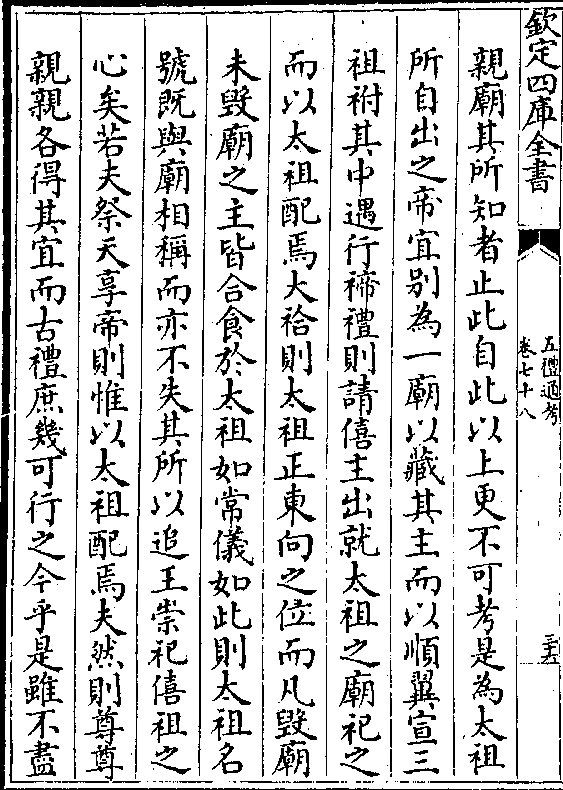 欽定四庫全書
五禮通考
卷七十八
三十五
親廟其所知者止此自此以上更不可考是為太祖
所自出之帝宜別為一廟以藏其主而以順翼宣三
祖祔其中遇行禘禮則請僖主出就太祖之廟祀之
而以太祖配焉大祫則太祖正東向之位而凡毀廟
未毀廟之主皆合食於太祖如常儀如此則太祖名
號既與廟相稱而亦不失其所以追王崇祀僖祖之
心矣若夫祭天享帝則惟以太祖配焉夫然則尊尊
親親各得其宜而古禮庶幾可行之今乎是雖不盡